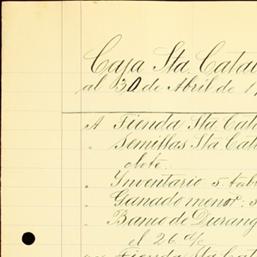 Caja Sta. Catal
al 30 de Abril de 1
A Tienda Sta. Cata
" Semillas Sta. Cat
" Inventario s. tab
" Ganado menor: s
" Banco de Durang
el 26 d/c
" Tienda Sta. Cat